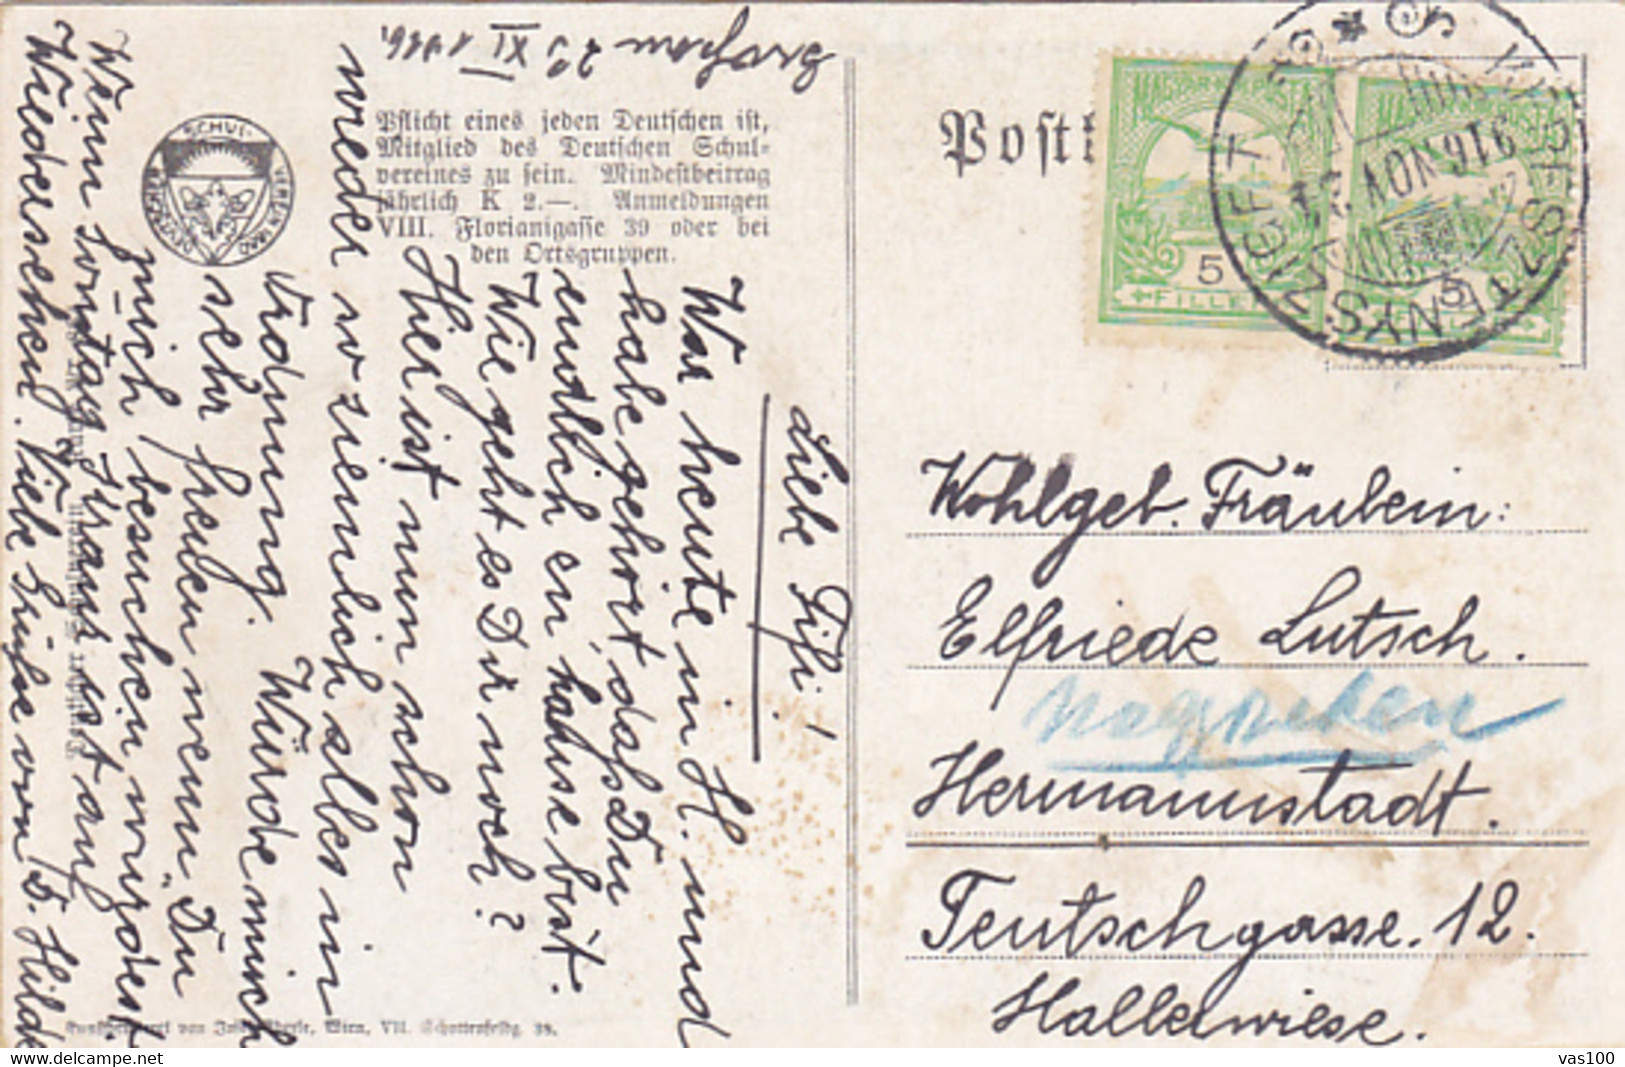 29 XI 1916.
Liebe Fifi!
War heute in H. und
habe gehört, dass Du
endlich zu hause bist.
Wie geht es Dir noch?
Hier ist nun schon
wieder so ziemlich alles in
Ordnung. Würde mich
sehr freuen wenn Du
mich besuchen würdest.
Wenn Sontag Kraus ist auf
Wiedersehen. Viele Grüße von D. Hilde
SCHUL-
VEREIN 1880
DEUTSCHER
Pflicht eines jeden Deutschen ist,
Mitglied des Deutschen Schul-
vereines zu sein. Mindestbeitrag
jährlich K 2.—. Anmeldungen
VIII. Florianigasse 39 oder bei
den Ortsgruppen.
von Josef Eberle, Wien, VII. Schottenfeldg. 39.
Postk
MAGYAR KIR. POSTA
5
FILLÉR
MAGYAR KIR. POSTA
5
KERESZTÉNYSZIGET
916 NOV
Wohlgeb. Fräulein:
Elfriede Lutsch.
Nagyszeben
Hermannstadt.
Teutschgasse. 12.
Hallerwiese.
vas100
delcampe.net